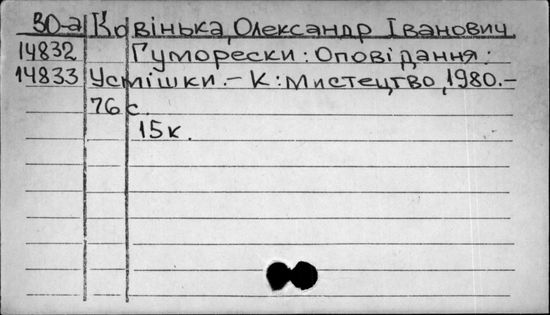 30-а Ковінька, Олександр Іванович.
14832 Гуморески: Оповідання:
14833 Усмішки. – К: Мистецтво, 1980. –
76 с.
15к.